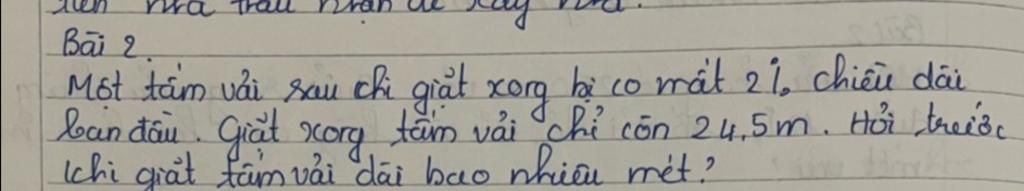 tiền nhà trâu nhận để xây nhà.
Bài 2.
Một tấm vải sau khi giặt xong bị co mất 2% chiều dài
ban đầu. Giặt xong tấm vải chỉ còn 24,5m. Hỏi trước
khi giặt tấm vải dài bao nhiêu mét?